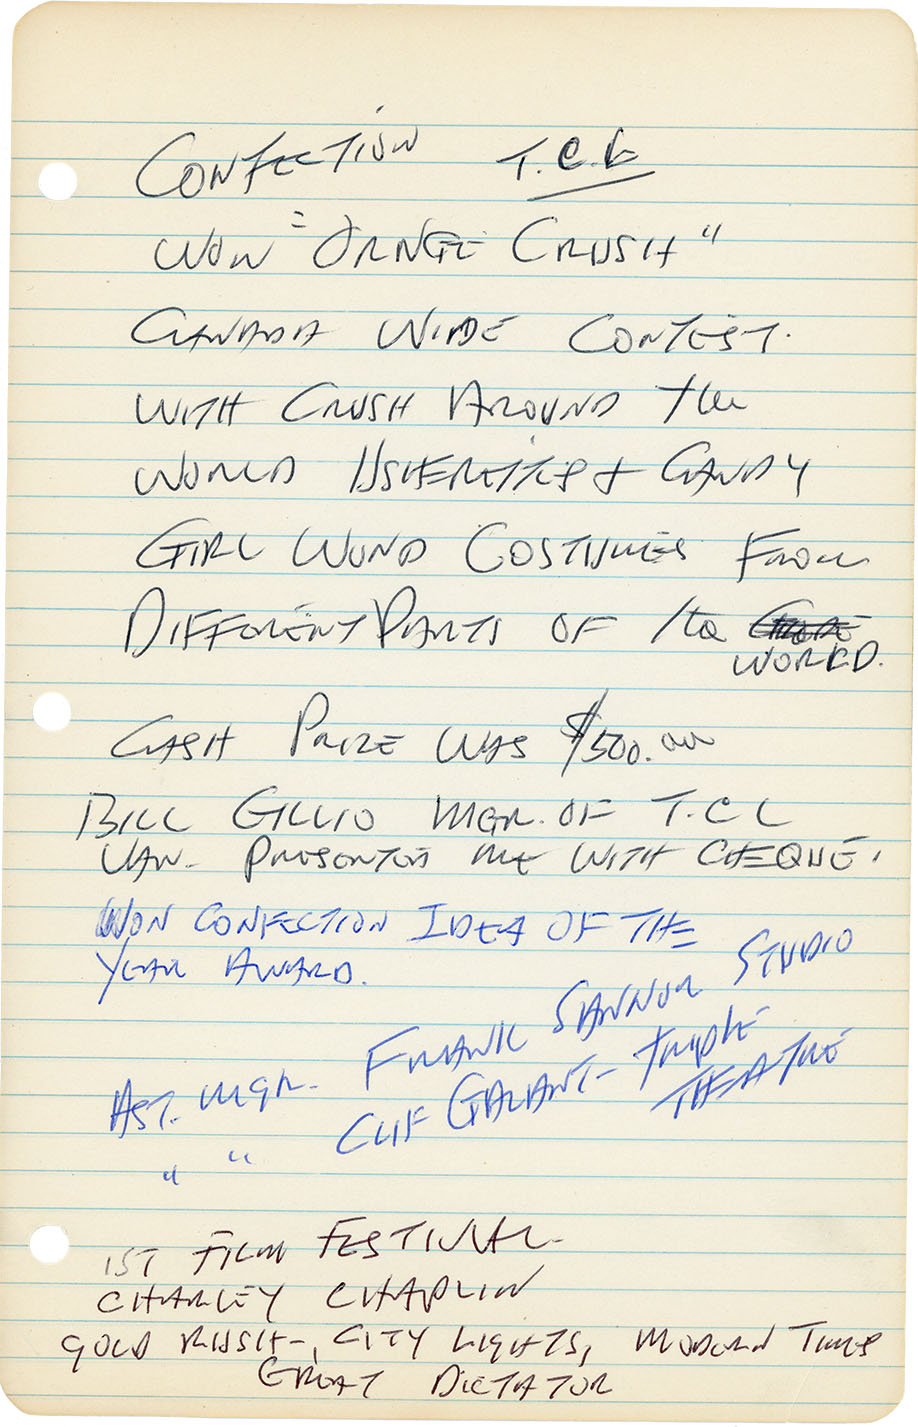 CONFECTION T.C.L
WON "ORNGE CRUSH"
CANADA WIDE CONTEST.
WITH CRUSH AROUND THE
WORLD USHERETTES & CANDY
GIRL WOND COSTUMES FROM
DIFFERENT PARTS OF THE
WORLD.
CASH PRIZE WAS $500.00
BILL GILLIO MGR. OF T.C L
VAN. PRESENTED ME WITH CHEQUE.
WON CONFECTION IDEA OF THE
YEAR AWARD.
AST. MGR. FRANK STUDIO
" " CLIF GALANT - TRIPLE
THEATRE
1ST FILM FESTIVAL
CHARLEY CHAPLIN
GOLD RUSH-, CITY LIGHTS, MODERN TIMES
GREAT DICTATOR